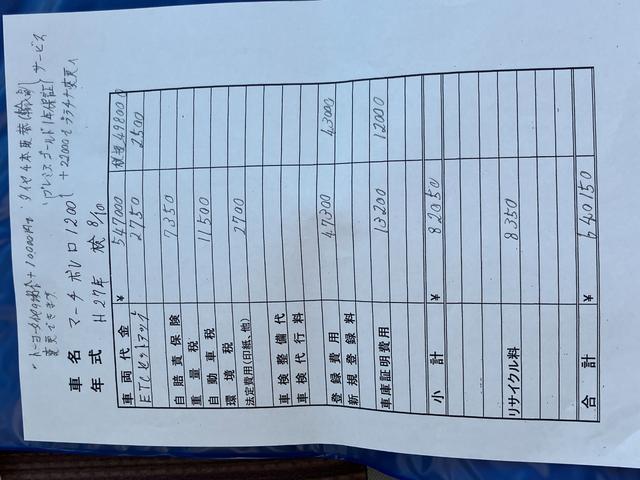 *トーヨータイヤの場合+10000円で 変更できます。
タイヤ4本更替(輸入)
プレミアムゴールド1年保証
サービス
+22000でプラチナ変更へ
車名 マーチ ボレロ 1200
年式 H27年 検 8/10
車両代金 ¥ 547000 税抜 498000
ETCセットアップ 2750 2500
自賠責保険 7350
重量税
自動車税 11500
環境税
法定費用(印紙、他) 2700
車検整備代
車検代行料
登録費用 47300 43000
新規登録料
車庫証明費用 13200 12000
小計 ¥ 82050
リサイクル料 8350
合計 ¥ 640150